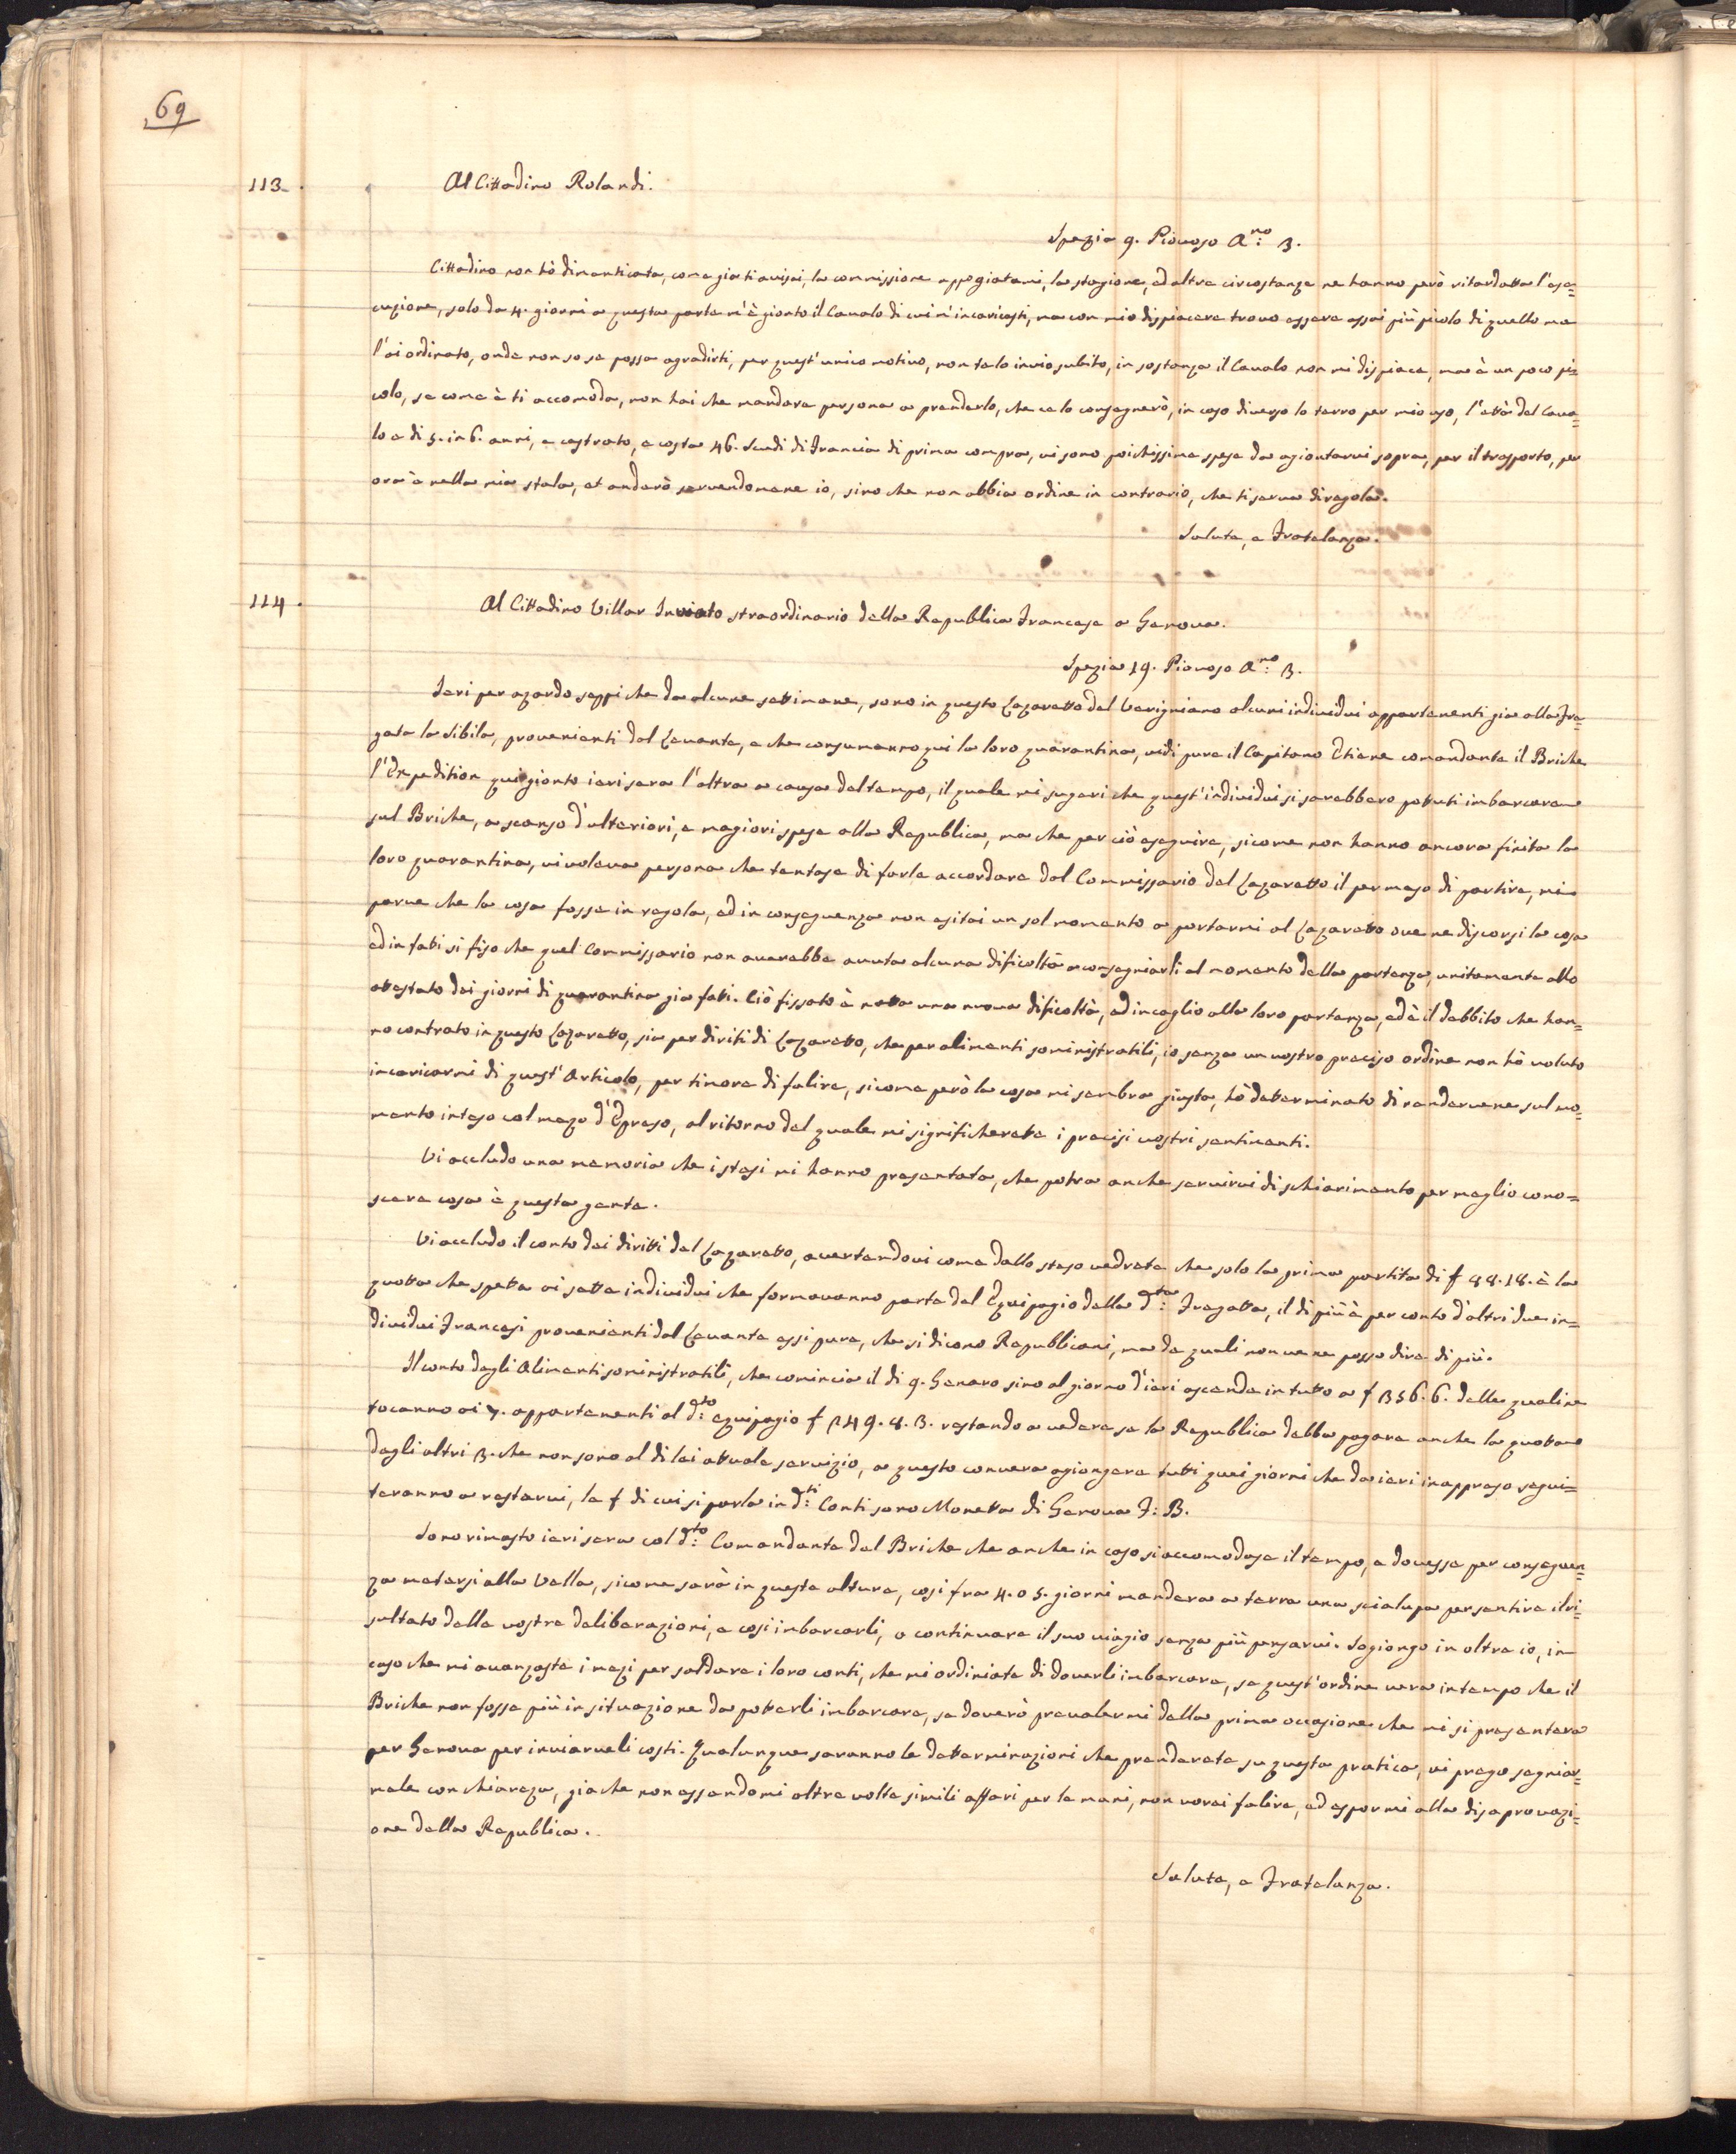 69
113.
Al Cittadino Rolandi.
Spezia 9. Piouoso A.no 3.
Cittadino non hò dimenticata, come gia ti auisai, la commissione appogiatami, la stagione, ed altre circostanze ne hanno però ritardatta l'ese=
cuzione, solo da 4. giorni a questa parte m'è gionto il Caualo di cui m'incaricasti, ma con mio dispiacere trouo essere assai più picolo di quello me
l'ai ordinato, onde non so se possa agradirti, per quest'unico motiuo, non te lo inuio subito, in sostanza il Caualo non mi dispiace, ma è un poco pi=
colo, se come è ti accomoda, non hai che mandare persona a prenderlo, che ce lo consegnerò, in caso diuerso lo terro per mio uso, l'età del Caua=
lo e di 5. in 6. anni, e castrato, e costa 46. Scudi di Francia di prima compra, ui sono poichissime spese da agiontarui sopra, per il trasporto, per
ora è nella mia stala, et anderò seruendomene io, sino che non abbia ordine in contrario, che ti serua di regola.
Salute, e Fratelanza.
114.
Al Cittadino Villar Inviato straordinario della Republica Francese a Genoua.
Spezia 19. Piouoso A.no 3.
Ieri per azardo seppi che da alcune settimane, sono in questo Lazaretto del Varigniano alcuni indiuidui appartenenti gia alla Fre=
gata la Sibila, prouenienti dal Leuante, e che consumanno qui la loro quarantina, uidi pure il Capitano Etiene comandante il Briche
l'Expedition qui gionto ieri sera l'altra a causa del tempo, il quale mi sugeri che quest'indiuidui si sarebbero potuti imbarcare
sul Briche, a scanso d'ulteriori, e magiori spese alla Republica, ma che per ciò eseguire, sicome non hanno ancora finita la
loro quarantina, ui voleua persona che tentase di farle accordare dal Commissario del Lazaretto il permeso di partire, mi
parue che la cosa fosse in regola, ed in conseguenza non esitai un sol momento a portarmi al Lazaretto oue ne discorsi la cosa
ed in fati si fisò che quel Commissario non auerebbe auuta alcuna dificoltà a consegniarli al momento della partenza, unitamente allo
atestato dei giorni di quarantina gia fati. Ciò fissato è natta una nuoua dificoltà, ed incaglio alla loro partenza, ed è il debbito che han=
no contrato in questo Lazaretto, sia per diriti di Lazaretto, che per alimenti soministratili, io senza un uostro preciso ordine non hò uoluto
incaricarmi di quest'Articolo, per timore di falire, sicome però la cosa mi sembra giusta, hò determinato di renderuene sul mo=
mento inteso col mezo d'Espreso, al ritorno del quale mi significherete i precisi uostri sentimenti.
Vi accludo una memoria che i stesi mi hanno presentata, che potra anche seruirui di schiarimento per meglio cono=
scere cosa è questa gente.
Vi accludo il conto dei diritti del Lazaretto, auertendoui come dallo steso uedrete che solo la prima partita di f 88.18. è la
quota che speta ai sette indiuidui che formauanno parte del Equipagio della d.ta Fregatta, il di più è per conto d'altri due in=
diuidui Francesi prouenienti dal Leuante essi pure, che si dicono Republicani, ma de quali non ue ne posso dire di più.
Il conto degli Alimenti soministratili, che comincia il di 9. Genaro sino al giorno d'ieri ascende in tutto a f 356.6. delle quali ne
tocanno ai 7. appartenenti al d.to equipagio f 249.8.3. restando a uedere se la Republica debba pagare anche la quota
degli altri 3. che non sono al di lei attuale seruizio, a questo conuera agiongere tutti quei giorni che da ieri inappreso segui=
teranno a restarui, le f di cui si parla in d.ti Conti sono Moneta di Genoua F: B.
Sono rimasto ieri sera col d.to Comandante del Briche che anche in caso si accomodase il tempo, e douesse per conseguen=
za metersi alla Vella, sicome sarà in queste alture, cosi fra 4. o 5. giorni mandera a terra una scialupa per sentire il ri=
sultato delle uostre deliberazioni, e cosi imbarcarli, o continuare il suo uiagio senza più pensarui. Sogiongo in oltre io, in
caso che mi auanzaste i mezi per saldare i loro conti, che mi ordiniate di douerli imbarcare, se quest'ordine uera in tempo che il
Briche non fosse più in situazione da poterli imbarcare, se douerò preualermi della prima occasione che mi si presentera
per Genoua per inuiarueli costi. Qualunque saranno le determinazioni che prenderete su questa pratica, ui prego segniar=
mele con chiareza, giache non essendomi altre uolte simili affari per le mani, non uorei falire, ed espormi alla disaprouazi=
one della Republica.
Salute, e Fratelanza.